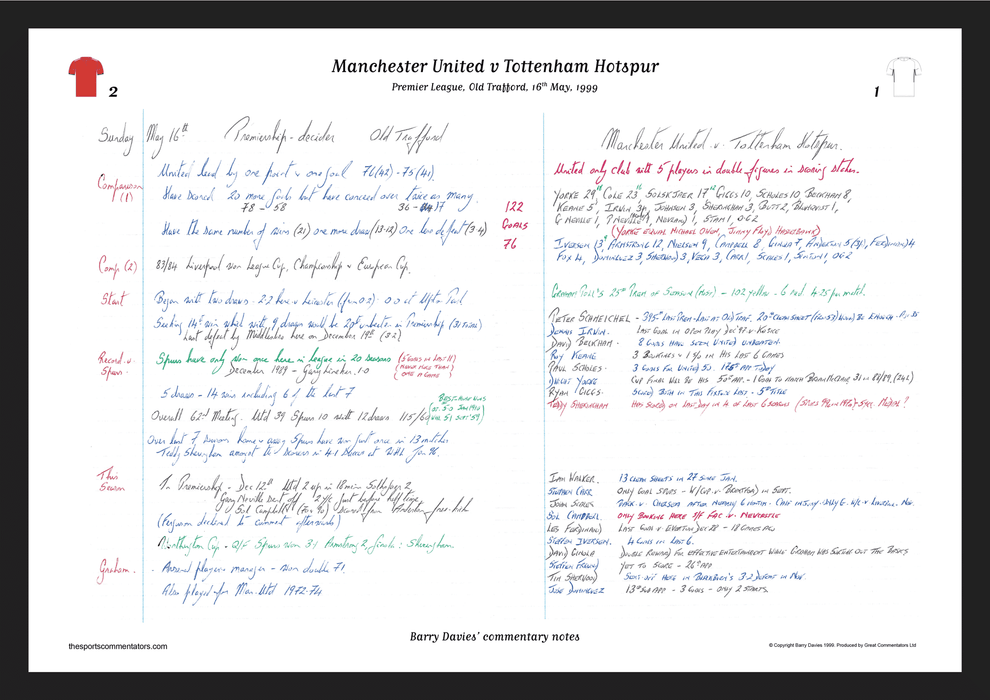 Manchester United v Tottenham Hotspur
Premier League, Old Trafford, 16th May, 1999
2
1
Sunday May 16th Premiership - decider Old Trafford
Comparison (1)
United lead by one point & one goal 76(42) - 75(41)
Have scored 20 more goals but have conceded over twice as many.
78 - 58 36 - 17
Have the same number of wins (21) one more draw (13-12) One less defeat (3-4)
122
GOALS
76
Comp (2)
83/84 Liverpool won League Cup, Championship & European Cup.
Start
Began with two draws - 2.2 here v Leicester 0 0 at
Seeking 14th win which with 9 draws will be 20th unbeaten in Premiership
Last defeat by Middlesbro here on December 19th (3.2)
Record v Spurs
Spurs have only won once here in League in 20 seasons
December 1989 - Gary Lineker. 1-0
(5 GOALS IN LAST 11
NEVER MORE THAN
ONE IN GAMES)
5 drawn - 14 wins including 6 of the last 7
Overall 62nd Meeting. Utd 39 Spurs 10 with 12 draws
Over last 7 seasons home & away Spurs have won just once in 13 matches
Teddy Sheringham amongst the scorers in 4-1 success at WHL Jan 96.
This Season
In Premiership - Dec 12th Utd 2 up in 18 mins Solskjaer 2
Gary Neville sent off 2 y/c just before half time
Sol Campbell 2 second from Anderton free-kick
(Ferguson declined to comment afterwards)
Worthington Cup - Q/F Spurs won 3-1 Armstrong 2, Ginola : Sheringham
Graham.
Arsenal player & manager - won double 71
Also played for Man. Utd 1972-74
Manchester United v. Tottenham Hotspur.
United only club with 5 players in double figures in scoring stakes.
YORKE 29, COLE 23, SOLSKJAER 17, GIGGS 10, SCHOLES 10, BECKHAM 8,
KEANE 5, IRWIN 3, JOHNSEN 3, SHERINGHAM 3, BUTT 2, BLOMQVIST 1,
G NEVILLE 1, P NEVILLE 1, 1, STAM 1, O.G 2
(YORKE EQUAL MICHAEL OWEN, JIMMY FLOYD HASSELBAINK)
IVERSEN 13, ARMSTRONG 12, NIELSEN 9, CAMPBELL 8, GINOLA 7, ANDERTON 5, FERDINAND 4
FOX 4, DOMINGUEZ 3, SHERWOOD 3, VEGA 3, CARR 1, SCALES 1, SINTON 1, OG 2
GRAHAM POLL'S 25th PREM OF SEASON - 102 yellow - 6 red 4.25 per match.
PETER SCHMEICHEL - LAST PREM - LAST AT OLD TRAF.
DENIS IRWIN. LAST GOAL IN OPEN PLAY DEC 97 v KOSICE
DAVID BECKHAM - 8 GOALS HAVE SEEN UNITED UNBEATEN.
ROY KEANE 3 BOOKINGS & 1 IN HIS LAST 6 GAMES
PAUL SCHOLES - 3 GOALS FOR UNITED 50. APP TODAY
DWIGHT YORKE CUP FINAL WILL BE HIS 50th APP.
RYAN GIGGS - SCORED BOTH IN THIS FIXTURE LAST - 5th TITLE
TEDDY SHERINGHAM HAS SCORED ON LAST DAY IN 4 OF LAST 6 SEASONS
IAN WALKER. 13 CLEAN SHEETS IN 27 SINCE JAN.
STEPHEN CARR ONLY GOAL SPURS - W/CUP v BRENTFORD IN SEPT.
JOHN SCALES
SOL CAMPBELL ONLY BOOKING HERE S/F FAC v. NEWCASTLE
LES FERDINAND LAST GOAL v EVERTON DEC 28 - 18 GAMES AGO
STEFFEN IVERSEN. 4 GOALS IN LAST 6.
DAVID GINOLA DOUBLE REWARD FOR EFFECTIVE ENTERTAINMENT
STEFFEN FREUND YET TO SCORE - 20th APP
TIM SHERWOOD SENT-OFF HERE IN BLACKBURN'S 3.2 DEFEAT IN NOV.
JOSE DOMINGUEZ 13th SUB APP - 3 GOALS - ONLY 2 STARTS.
Barry Davies' commentary notes
thesportscommentators.com
© Copyright Barry Davies 1999. Produced by Great Commentators Ltd